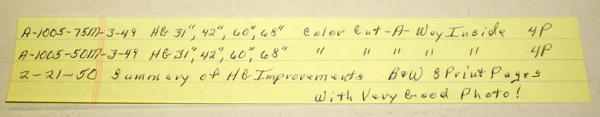 A-1005-75M-3-49 HG 31", 42", 60", 68" Color Cut-A-Way Inside 4P
A-1005-50M-3-49 HG 31", 42", 60", 68" " " " " " 4P
2-21-50 Summary of HG Improvements B&W 8 Print Pages
With Very Good Photo!